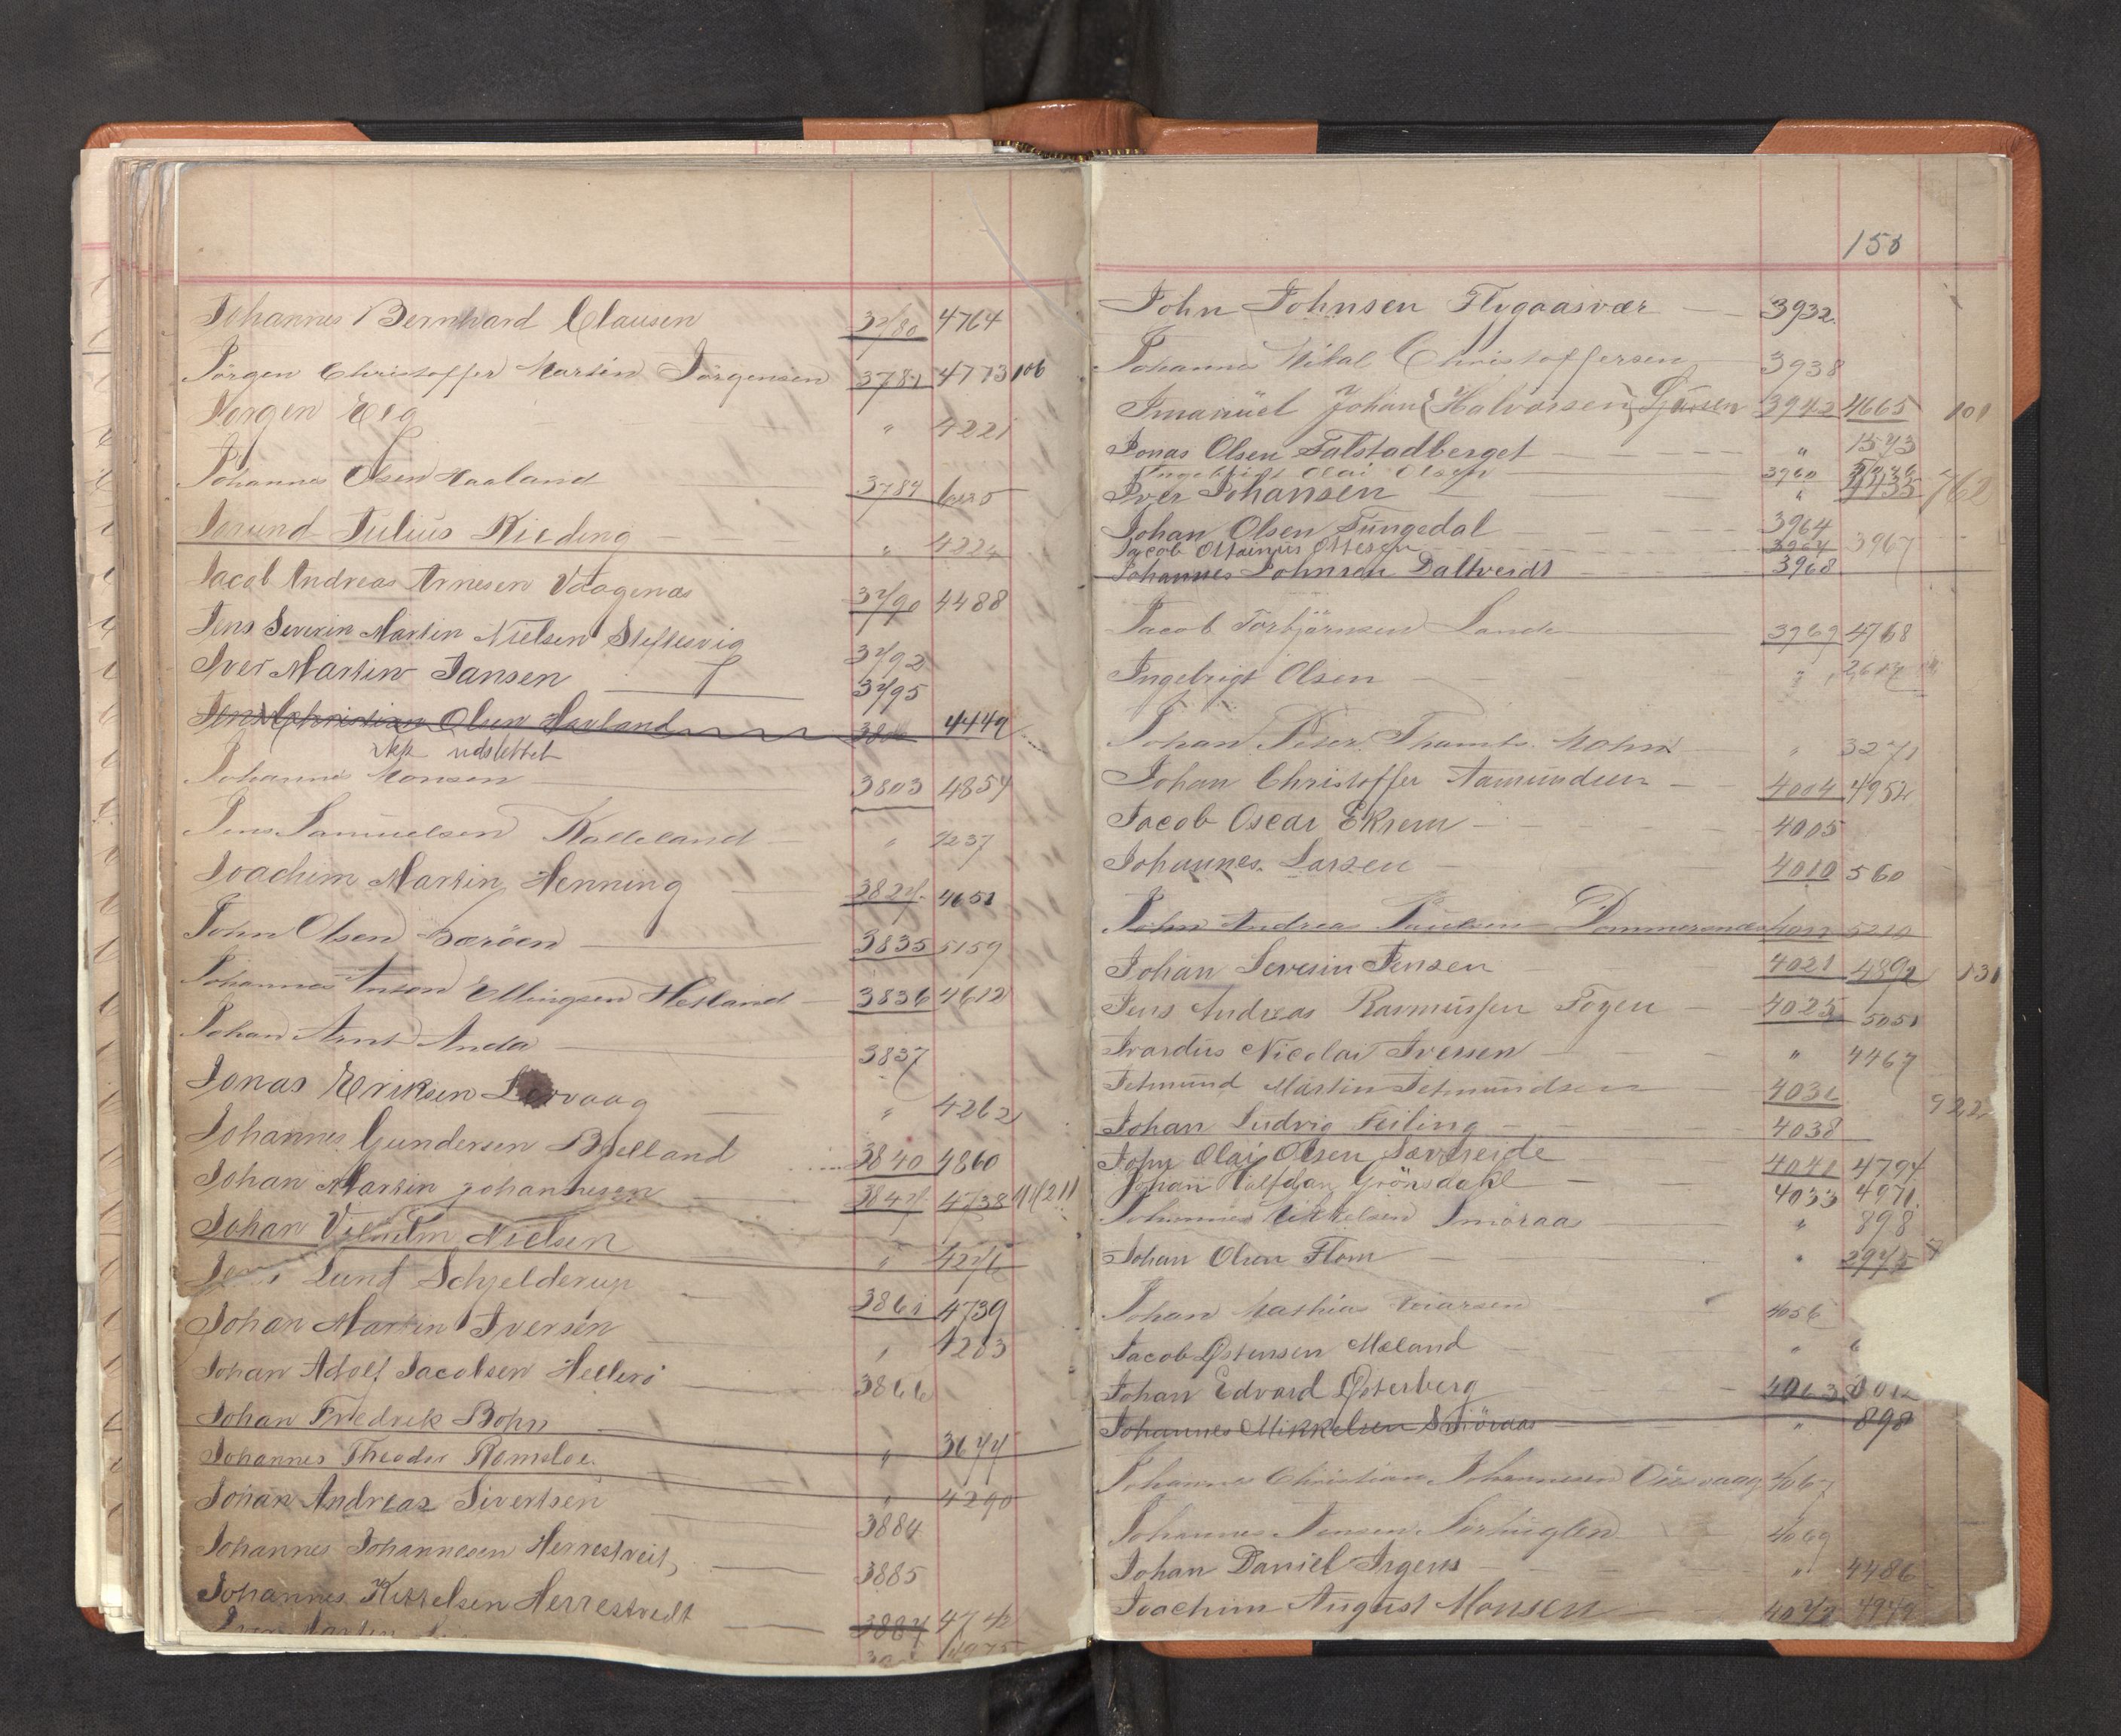 Johannes Bernhard Clausen 3780 4764
Jørgen Christoffer Martin Jørgensen 3781 4773 106
Jørgen Elg " 4221
Johannes Olsen Haaland 3784
Jorund Julius Rieding " 422
Jacob Andreas Arnesen Vaagenæs 3790 4488
Jens Severin Martin Nielsen Steflesvig 3792
Iver Martin Jansen 3795
Jens Christian Olsen Havland 4449
udslettet
Johannes Monsen 3803 4854
Jens Samuelsen Kalleland " 4237
Joachim Martin Henning 3824 4651
John Olsen Barøen 3835 5159
Johannes Anson Ellingsen Hetland 3836 4612
Johan Arnt Anda 3837
Jonas Eriksen Lervaag " 4262
Johannes Gundersen Bjelland 3840 4860
Johan Martin Johannesen 3847 4738
Johan Vilhelm Nielsen " 4276
Lund Schjelderup 3861 4739
Johan Martin Iversen " 4283
Johan Adolf Jacobsen Hellerö 3866
Johan Fredrik Bohn " 3674
Johannes Theodor Romsloe " 4290
Johan Andreas Sivertsen 3884
Johannes Johannesen Herrestveit 3885
Johannes Kittelsen Herrestvedt 3887 4742
Martin 4975
150
John Johnsen Flygaasvær 3932
Johannes Mikal Christoffersen 3938
Imanüel Johan (Halvorsen) 3942 4665 101
Jonas Olsen Falstadberget " 1573
Ingebrigt Olai Olsen 3960
Iver Johansen " 762
Johan Olsen Tüngedal 3964
Jacob Ottesen 3967
Johannes Johnson Daltveidt 3968
Jacob Torbjörnsen Lande 3969 4768
Ingebrigt Olsen "
Johan Peter Thambs Mohn " 3271
Johan Christoffer Aamundsen 4004 4952
Jacob Oscar Ekrem 4005
Johannes Larsen 4010 560
John Andreas Paulsen 5210
Johan Severin Jensen 4021 4892 131
Jens Andreas Rasmussen Foyen 4025 5051
Ivardus Nicolai Iversen " 4467
Jetmund Martin Jetmundsen 4036 922
Johan Ludvig Feiling 4038
John Olai Olsen Sævreide 4041 4794
Johan Halfdan Grönsdahl 4033 4971
Johannes Mikkelsen Smøraas " 898
Johan Olsen Flom " 2975
Johan Mathias 4056
Jacob Østensen Mæland "
Johan Edvard Østerberg 4063
Johannes Mikkelsen Smöraas " 898
Johannes Christian Johannesen 4067
Johannes Jensen 4069
Johan Daniel Irgens " 4486
Joachim August Monsen 4073 4949